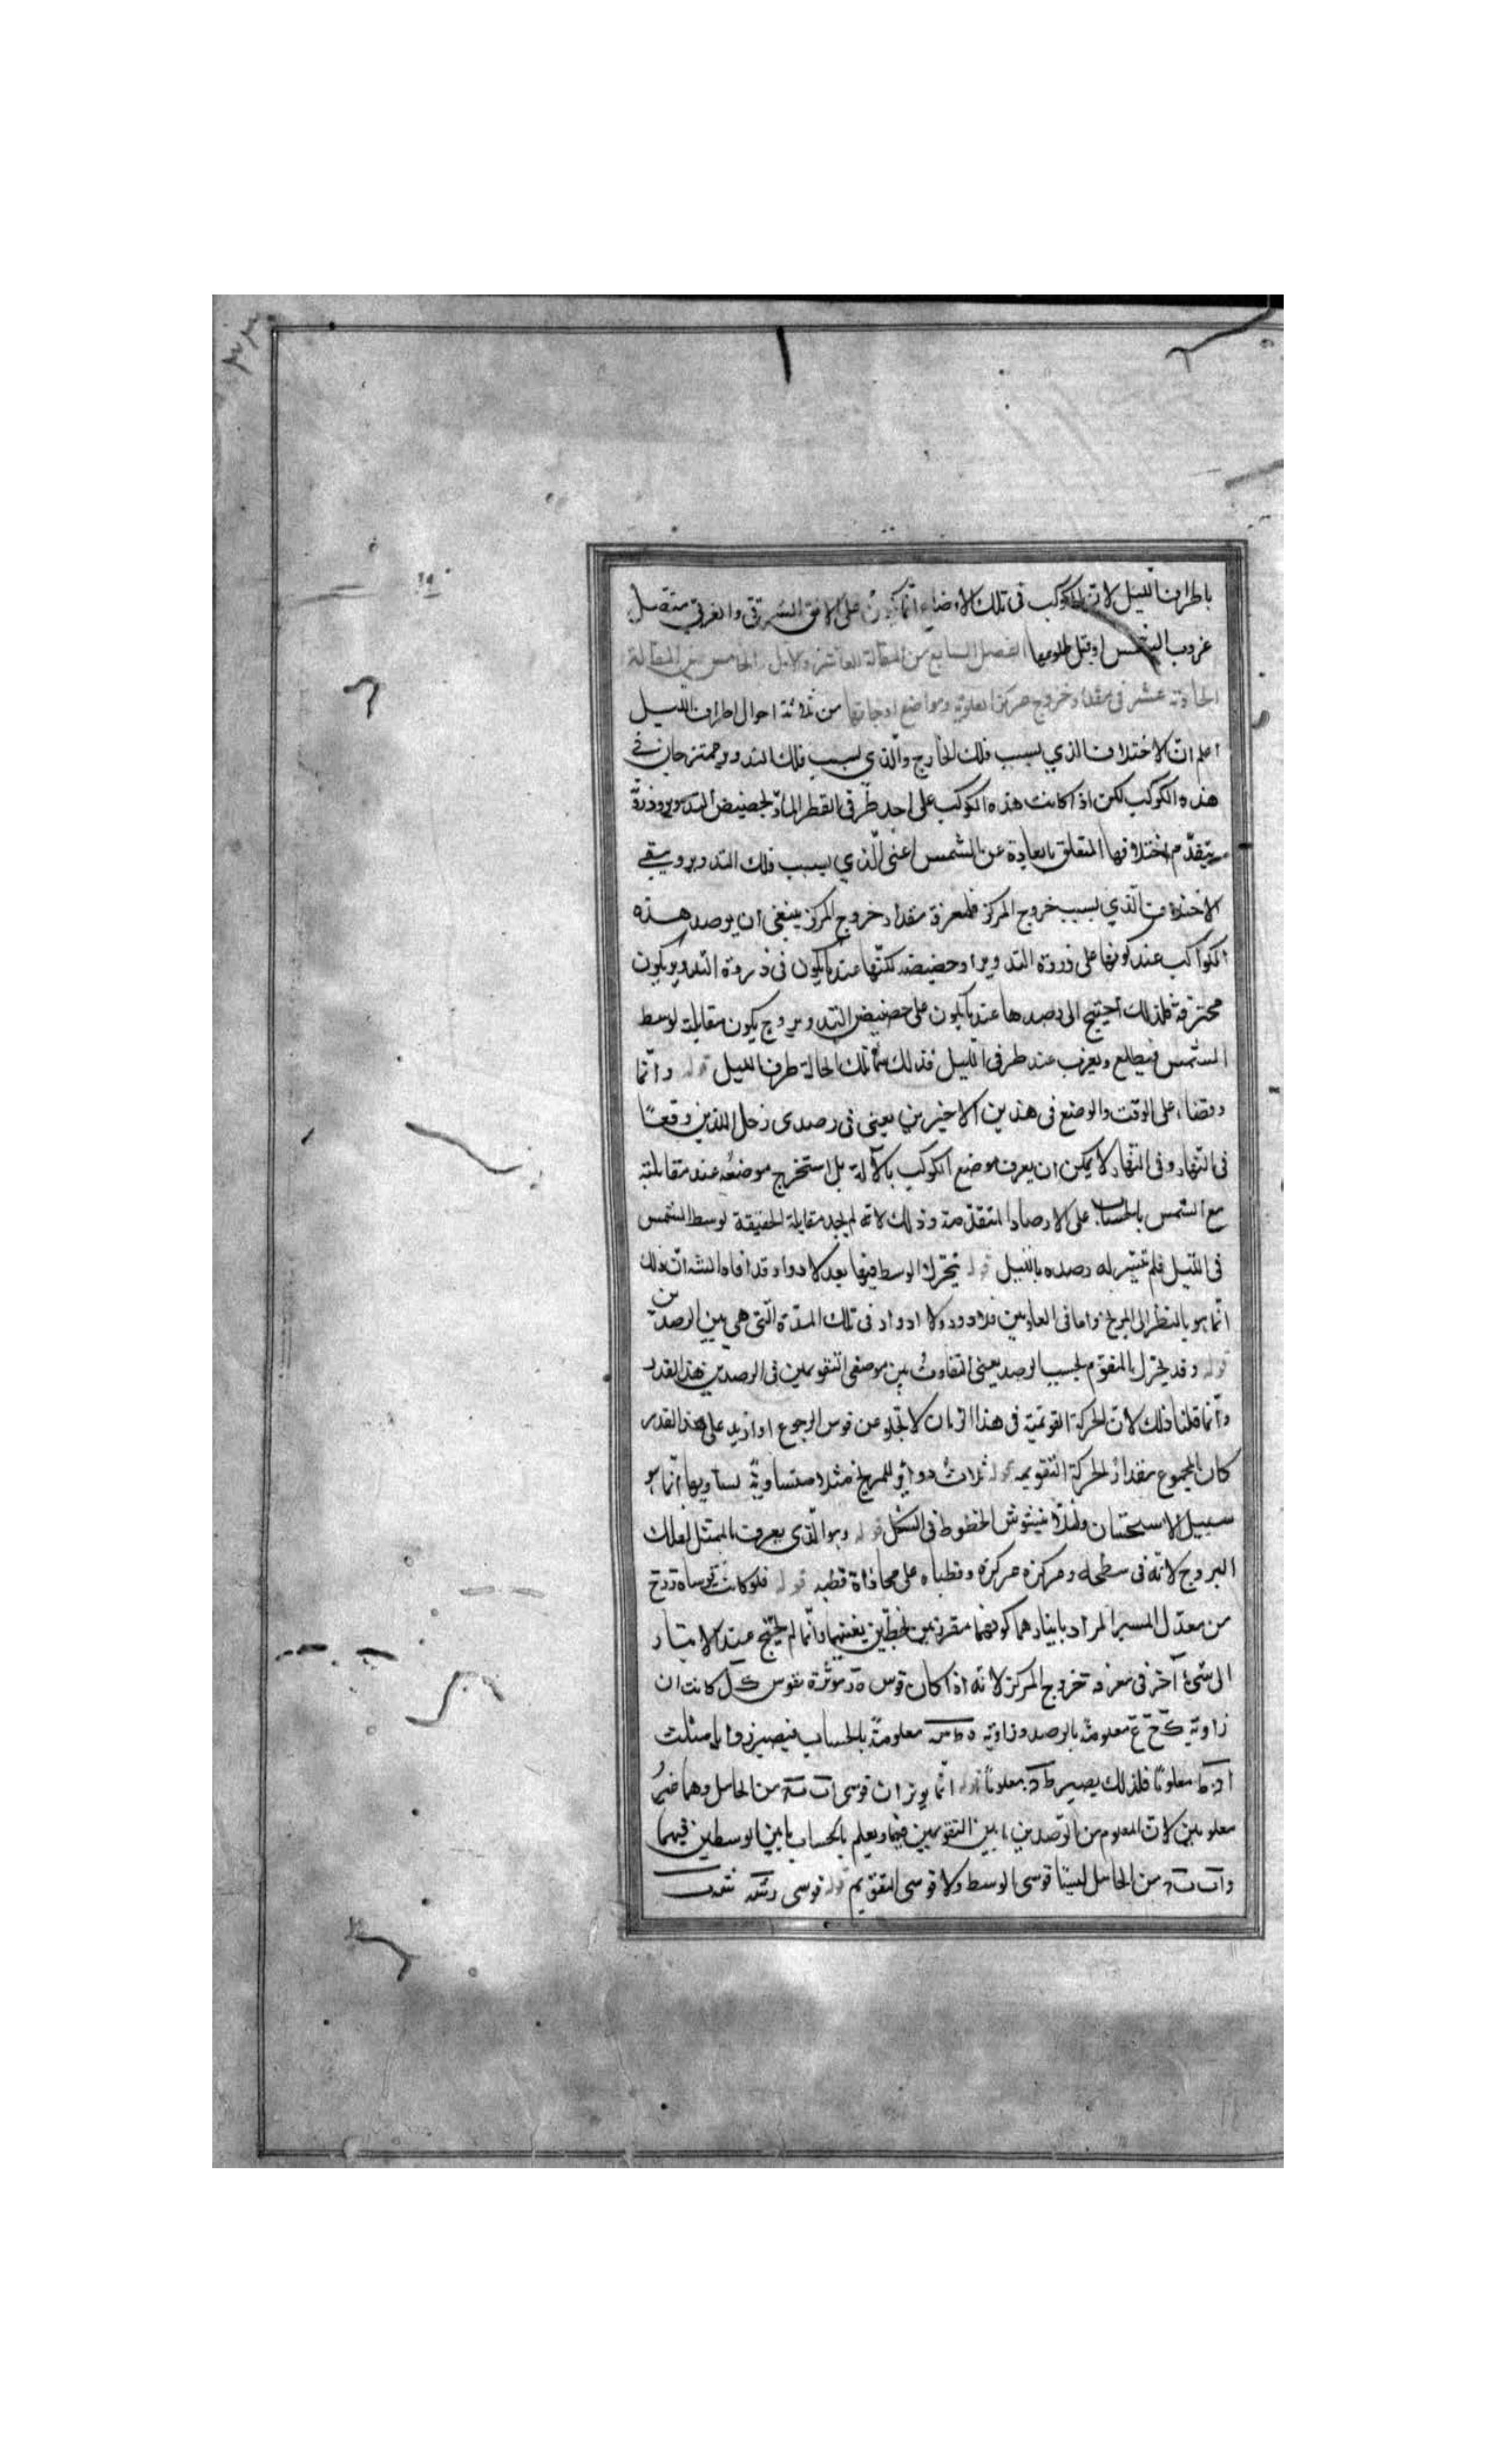 باطراف الليل لان الكوكب فى تلك الاوضاع انما يكون على الافق الشرقى والغربى متصل
غروب الشمس او قبل طلوعها الفصل السابع من المقالة العاشرة والاول الخامس من المقالة
الحادية عشر فى مقدار خروج مركز العلوية ومواضع اوجاتها من ثلاثة احوال اطراف الليل
اعلم ان الاختلاف الذي بسبب فلك الخارج والذي بسبب فلك التدوير ممتزجان فى
هذه الكواكب لكن اذا كانت هذه الكواكب على احد طرفى القطر المار بحضيض التدوير وذروة
ينعدم اختلافها المتعلق بابعادة عن الشمس اعنى الذي بسبب فلك التدوير ويبقى
الاختلاف الذي بسبب خروج المركز فلمعرفة مقدار خروج المركز ينبغى ان يرصد هذه
الكواكب عند كونها على ذروة التدوير او حضيضه لكنها عند ما يكون فى ذروة التدوير يكون
محترقة فلذلك احتيج الى رصدها عند ما يكون على حضيض التدوير وح يكون مقابلة لوسط
الشمس فيطلع ويغرب عند طرفى الليل فلذلك سمى تلك الحالة طرفا الليل قوله وانما
وقفنا على الوقت والوضع فى هذين الاخيرين يعنى فى رصدى زحل اللذين وقعا
فى النهار وفى النهار لا يمكن ان يعرف موضع الكوكب بالآلة بل استخرج موضعه عند مقابلته
مع الشمس بالحساب على الارصاد المتقدمة وذلك لانه لم يجد مقابلة الحقيقة لوسط الشمس
فى الليل فلم تتيسر له رصده بالليل قوله يتحرك الوسط فيها بعد الادوار قد افاد ان ذلك
انما هو بالنظر الى المريخ واما فى العلويين فلا ورود ولا ادوار فى تلك المدة التى هى بين الرصدين
قوله وقد يتحرك بالمقوم بحسب الرصد يعنى التفاوت بين موضعى التقويمين فى الرصدين هذا القدر
وانما قلنا ذلك لان الحركة التقويمية فى هذا الزمان لا تخلو عن قوس الرجوع او ازيد على هذا القدر
كان المجموع مقدار الحركة التقويمية قوله ثلاث دوائر للمريخ مثلا متساوية تساويها انما هو
سبيل الاستحسان ولئلا يتشوش الخطوط فى الشكل قوله وهو الذي يعرف بالممثل لفلك
البروج لانه فى سطحه ومركزه مركزه وقطباه على محاذاة قطبيه قوله فلو كانت قوسا
من معدل المسير المراد بايثارهما كونهما مقرنة بين لخطين وانما لم يحتج عند
الى شئ آخر فى معرفة خروج المركز لانه اذا كان قوس موثرة بقوس كل كانت ان
زاوية معلومة بالرصد وزاوية معلومة بالحساب فيصير زوايا مثلث
معلوما فلذلك يصير معلوما قوله انما يوتران قوسى من الحامل وهما غير
معلومين لان المعلوم من الرصدين ما بين التقويمين فيها ويعلم بالحساب ما بين الوسطين فيهما
من الحامل ليستا قوسى الوسط ولا قوسى التقويم قوله قوسى